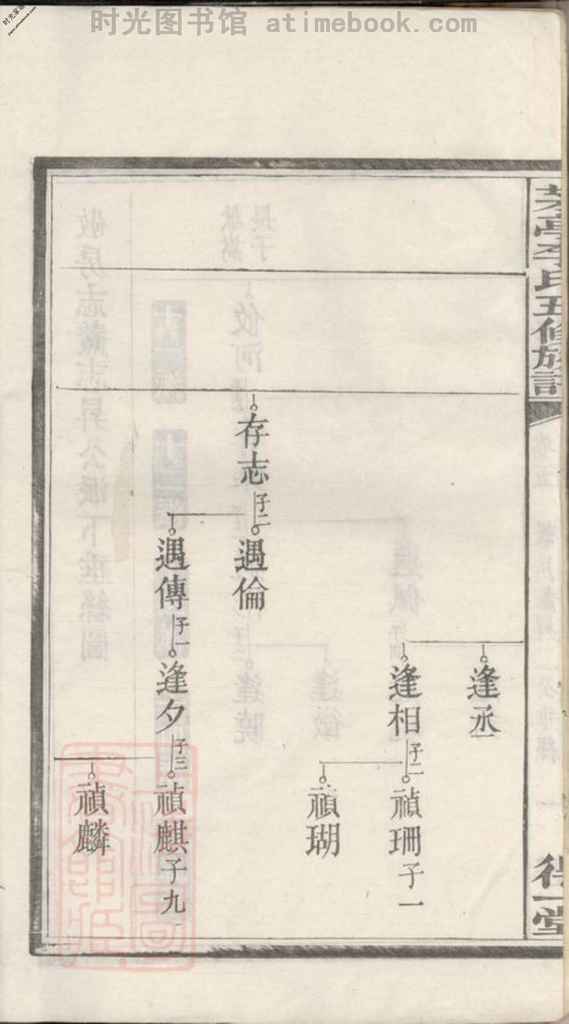 时光图书馆 atimebook.com
李氏五修族譜
得一堂
存志 子二
遇倫
遇傳 子一
逢丞
逢相 子二
逢夕 子三
禎珊 子一
禎瑚
禎麒 子九
禎麟